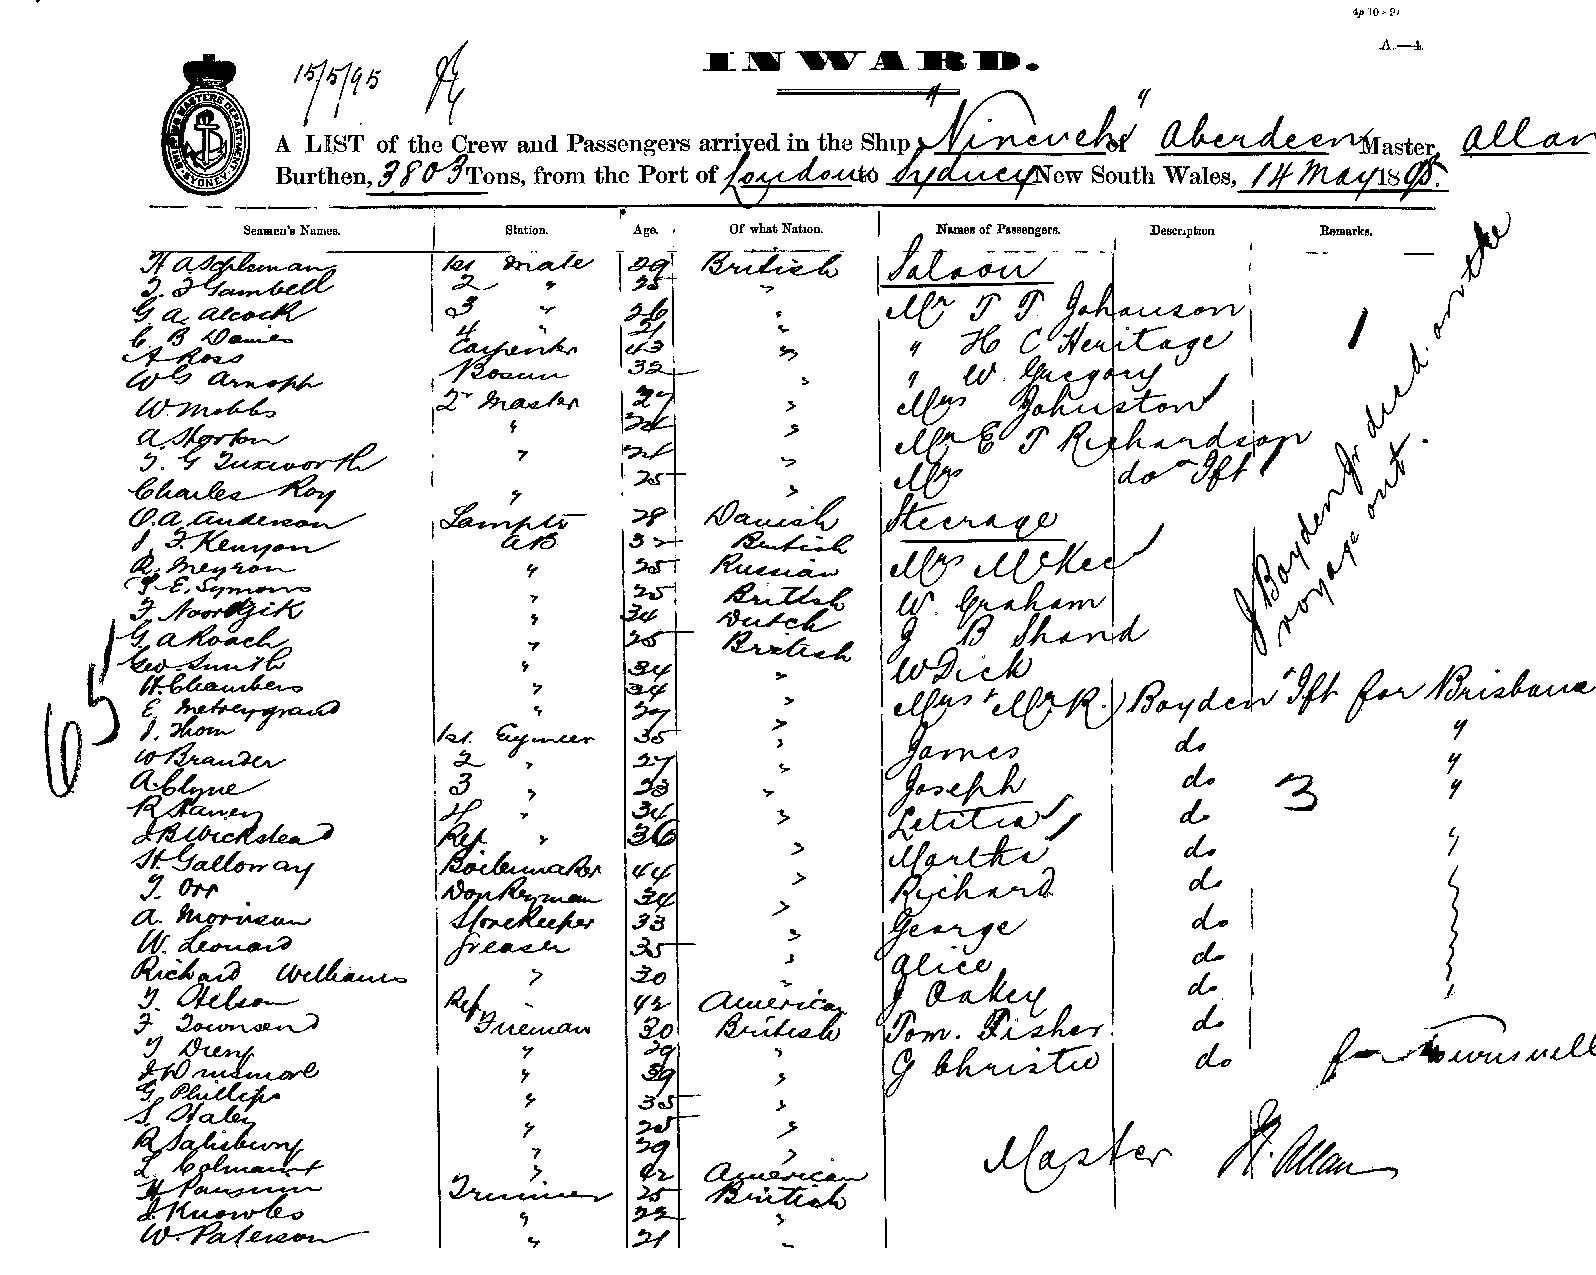 4p 10 - 9/
A.—4.
15/5/95
INWARD.
A LIST of the Crew and Passengers arrived in the Ship "Nineveh" Aberdeen Master, Allan
Burthen, 3803 Tons, from the Port of London to Sydney New South Wales, 14 May 1895.
Seamen's Names. Station. Age. Of what Nation. Names of Passengers. Description Remarks.
1st Mate 29 British Saloon
T. F Gambell 2 " 25 "
G A. Alcock 3 " 26 " Mr T T. Johanson
C. B Davies 4 " 21 "
A Ross Carpenter 43 " " H C Heritage
WG Bosun 32 " " W. Gregory
W Mobbs 2r Master 27 " Mrs Johnston
A. Storton " 24 " Mr E T Richardson
T. G Tuxworth " 21 " Mrs do " Ift
Charles Roy " 25 "
O. A. Anderson Lamps 28 Danish Steerage
J. F. Kenyon AB 32 British
A. Meyron " 25 Russian Mrs McKee
E. Symons " 25 British W. Graham
F Noordzik " 34 Dutch
G. A Roach " 25 British J B Shand
Geo Smith " 34 " W Dick
H. Chambers " 34 "
E. " 27 " Mrs & Mr R. Boyden Ift for Brisbane
J. Thom 1st. Engineer 35 " James do "
W Brander 2 " 27 "
A. Clyne 3 " 23 " Joseph do 3 "
R 4 " 34 " Letitia do
J. B Wickstead Ref. " 36 " Martha do "
H. Galloway Boilermaker 44 " Richard do
T. Orr Donkeyman 34 "
A. Morrison Storekeeper 33 " George do
W. Leonard Greaser 35 " Alice do
Richard Williams " 30 "
T. Nelson Ref " 42 American J Oakey do
F Townsend Fireman 30 British Tom. Fisher do
T " 29 "
" 39 " G Christie do for
G. Phillips " 35 "
S. Haley " 25 "
R Salisbury " 29 "
L. " 42 American Master H. Allan
H Trimmer 25 British
J. Knowles " 22 "
W. Paterson " 21 "
65
1
J Boyden Jr. died on the
voyage out.